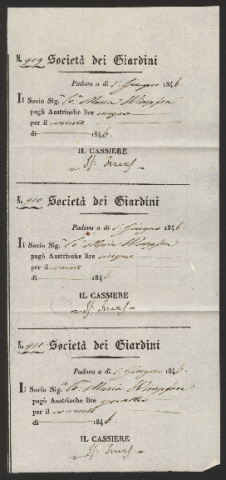 N. 909 Società dei Giardini
Padova a di 1. Giugno 1846
Il Socio Sig. Co. Maria
pagò Austriache lire cinque
per il corrente
di 1846
IL CASSIERE
N. 910 Società dei Giardini
Padova a di 1. Giugno 1846
Il Socio Sig. Co. Maria
pagò Austriache lire cinque
per il corrente
di 1846
IL CASSIERE
N. 911 Società dei Giardini
Padova a di 1. Giugno 1846
Il Socio Sig. Co. Maria
pagò Austriache lire quattro
per il corrente
di 1846
IL CASSIERE